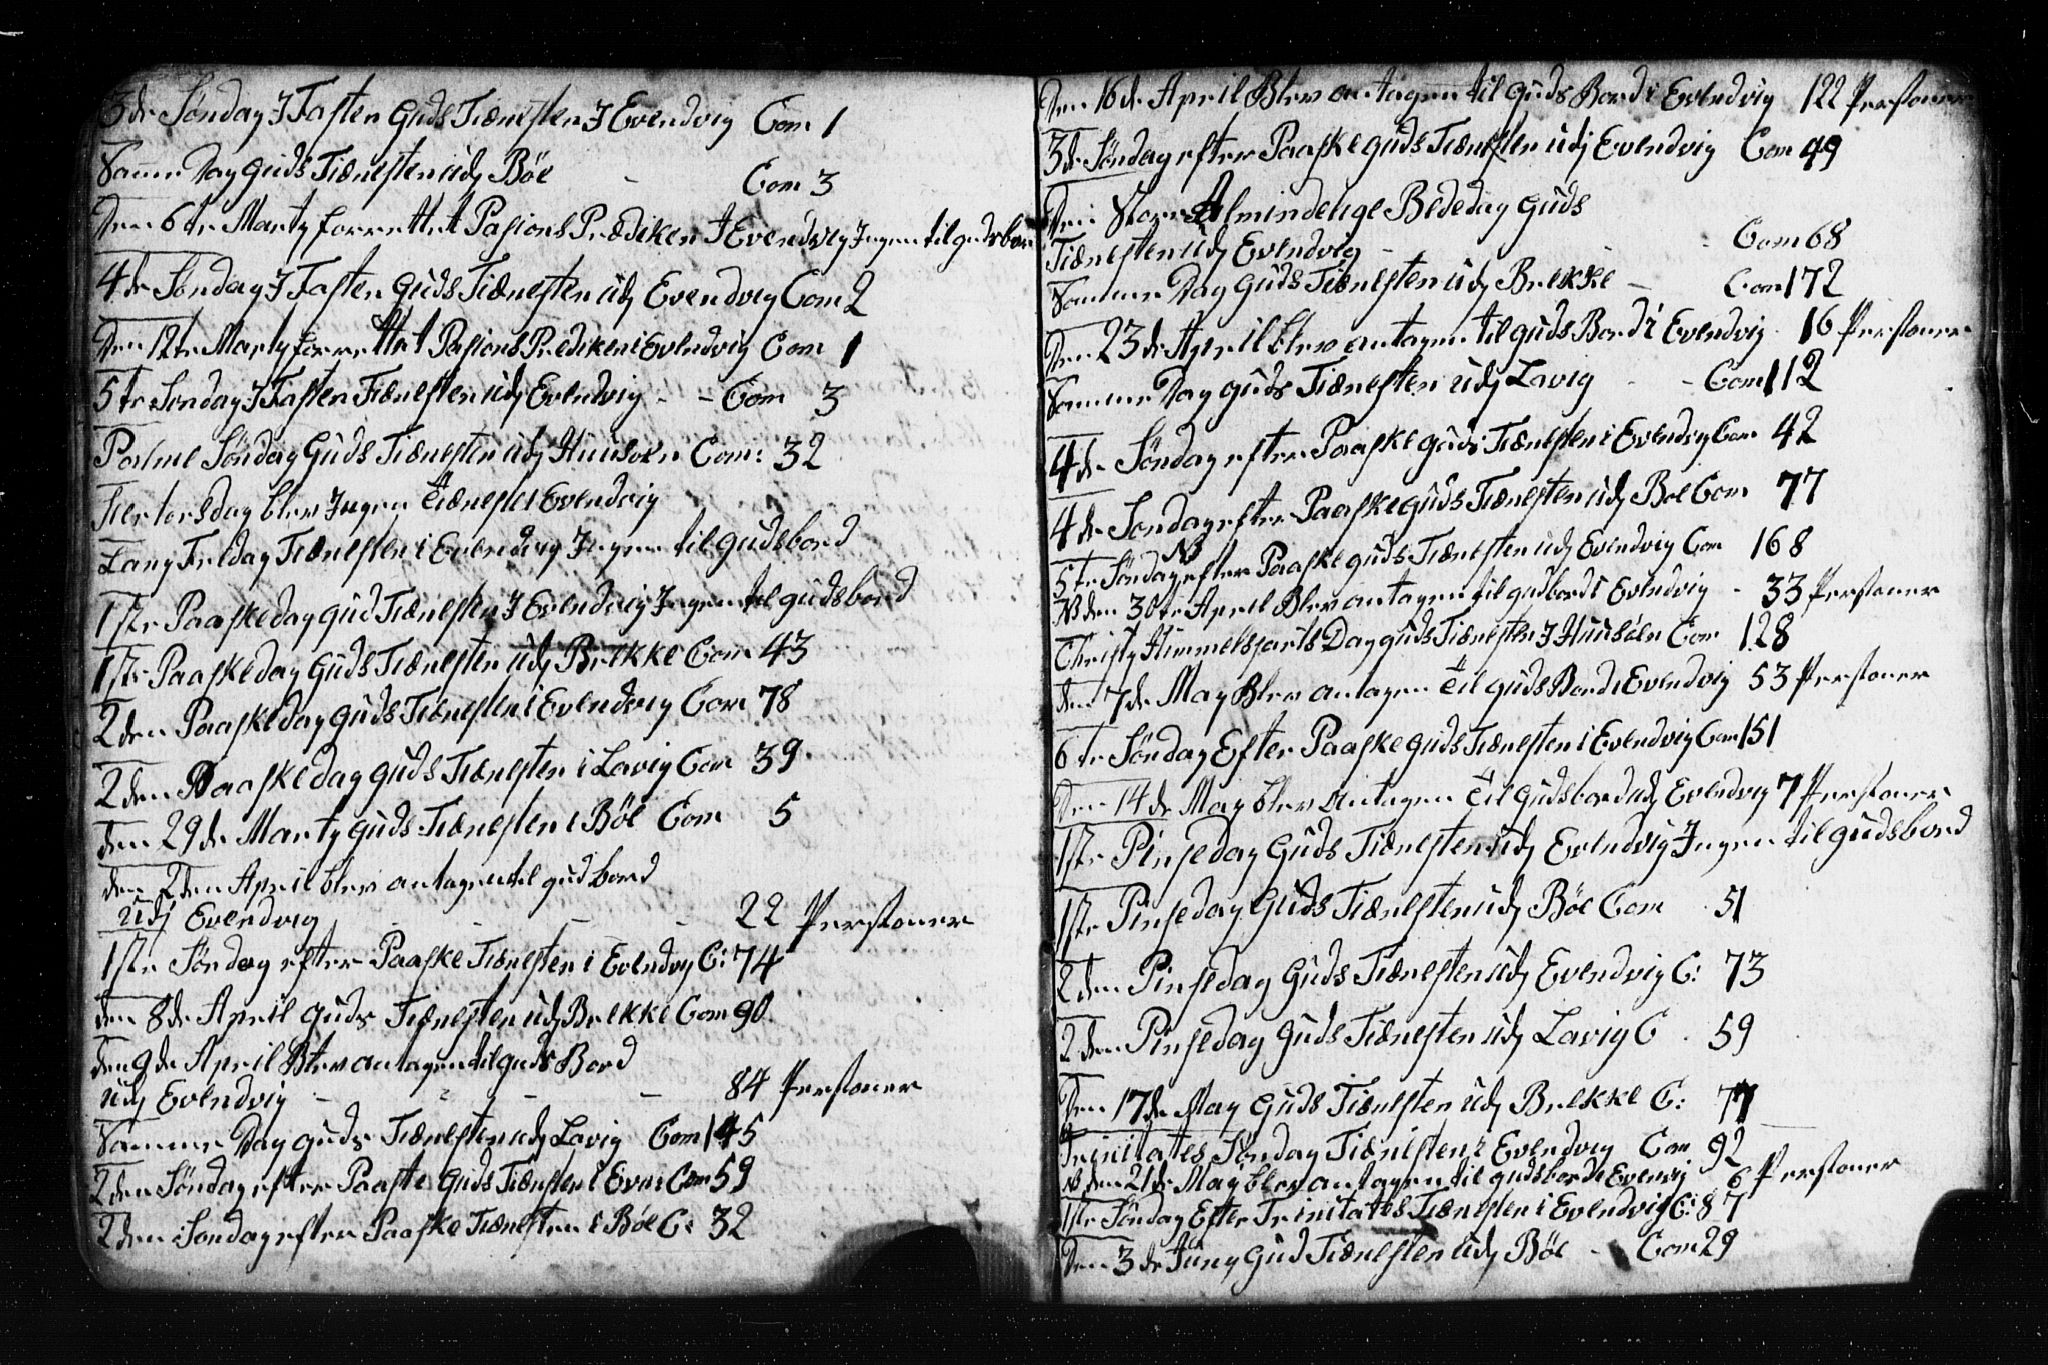 3de Søndag I Fasten Guds Tiænesten I Evendvig Com 1
Samme Dag Guds Tiænesten udj Böe - Com 3
Den 6te Marty forrettet Pasions Prædiken I Evendvig Ingen til guds bor
4de Søndag I Fasten Guds Tiænesten udj Evendvig Com 2
Den 12te Marty forrettet Pasions Prediken i Evendvig Com 1
5te Søndag I Fasten Tiænesten udj Evendvig - - Com 3
Palme Søndag Guds Tiænesten udj Huusøen Com: 32
Skertorsdag blev Ingen Tiæneste i Evendvig
Lang Fredag Tiænesten i Evendvig Ingen til gudsbord
1ste Paaskedag gud Tiænesten I Evendvig Ingen til gudsbord
1ste Paaskedag Guds Tiænesten udj Brekke Com 43
2den Paaskedag guds Tiænesten i Evendvig Com 78
2den Paaskedag guds Tiænesten i Lavig Com 39
den 29de Marty guds Tiænesten i Böe Com 5
den 2den April blev antagen til gud bord
udj Evendvig - - - - 22 Persioner
1ste Søndag efter Paaske Tiænesten i Evendvig C: 74
den 8de April guds Tiænesten udj Brekke Com 90
den 9de April Blev antagen til guds Bord
udj Evendvig - - - - - 84 Persioner
Samme Dag guds Tiænesten udj Lavig Com 145
2den Søndag efter Paaske Guds Tiænesten i Even Com 59
2den Søndag efter Paaske Tiænesten i Böe C: 32
Den 16de April Blev antagen til guds Bord i Evendvig 122 Persioner
3de Søndag efter Paaske guds Tiænesten udj Evendvig Com 49
Den Store Almindelige Bededag Guds
Tiænesten udj Evendvig - - - Com 68
Samme Dag Guds Tiænesten udj Brekke - Com 172
Den 23de April blev antagen til guds Bord i Evendvig 16 Persioner
Samme Dag guds Tiænesten udj Lavig - - Com 112
4de Søndag efter Paaske guds Tiænesten i Evendvig Com 42
4de Søndag efter Paaske guds Tiænesten udj Böe Com 77
5te Søndag NB efter Paaske guds Tiænesten udj Evendvig Com 168
NB den 30te April Blev antagen til gudbord i Evendvig - 33 Persioner
Christy Himmelsfarts Dag guds Tiænesten I Huusöen Com 128
den 7de May Blev antagen Til guds Bord i Evendvig 53 Persioner
6te Søndag Efter Paaske guds Tiænesten i Evendvig Com 151
Den 14de May blev antagen Til gudsbord udj Evendvig 7 Persioner
1ste Pinsedag Guds Tiænesten udj Evendvig Ingen til gudsbord
1ste Pinsedag Guds Tiænesten udj Böe Com 51
2den Pinsedag Guds Tiænesten udj Evendvig C: 73
2den Pinsedag Guds Tiænesten udj Lavig C 59
Den 17de May Guds Tiænesten udj Brekke C: 77
Trinitates Søndag Tiænisten i Evendvig Com 92
NB den 21de May blev antagen til gudsbord i Evenvig 6 Persioner
1ste Søndag Efter Trinitates Tiænesten i Evendvig C: 87
Den 3de Juny Gud Tiænesten udj Böe - Com 29